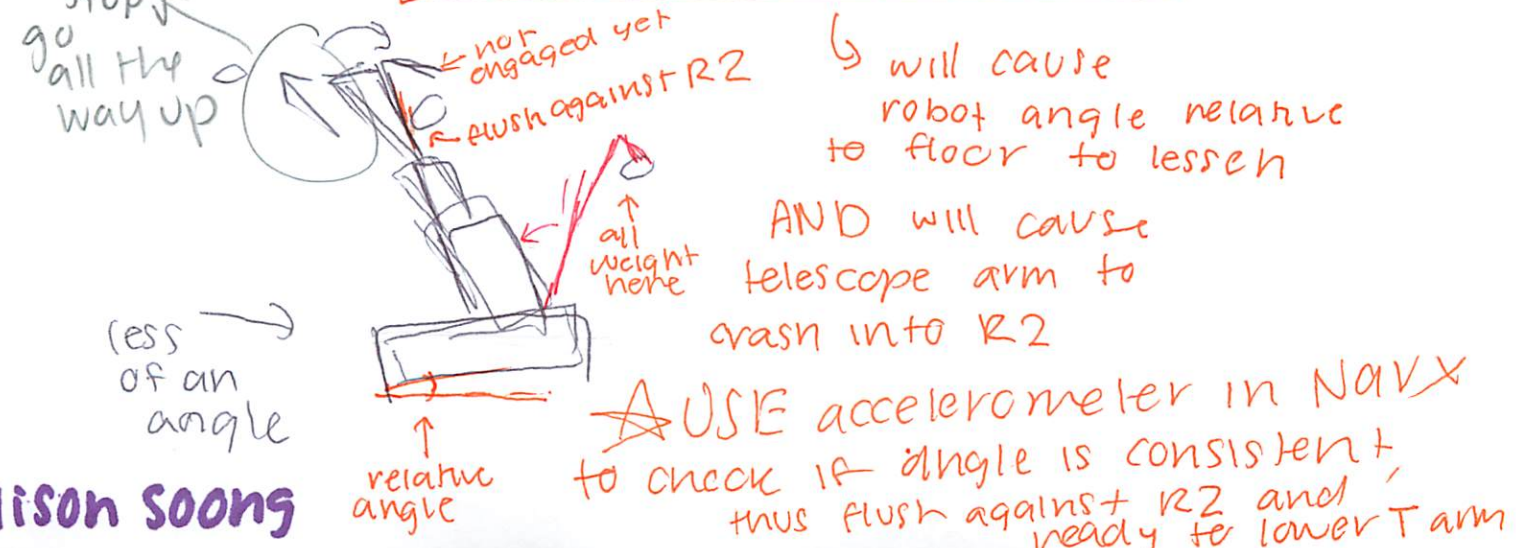 stop
go
all the
way up
← not
engaged yet
← flush against R2
↳ will cause
robot angle relative
to floor to lessen
all
weight
here
AND will cause
telescope arm to
crash into R2
less
of an
angle
relative
angle
☆ USE accelerometer in NavX
to check if angle is consistent,
thus flush against R2 and
ready to lower T arm
lison Soong